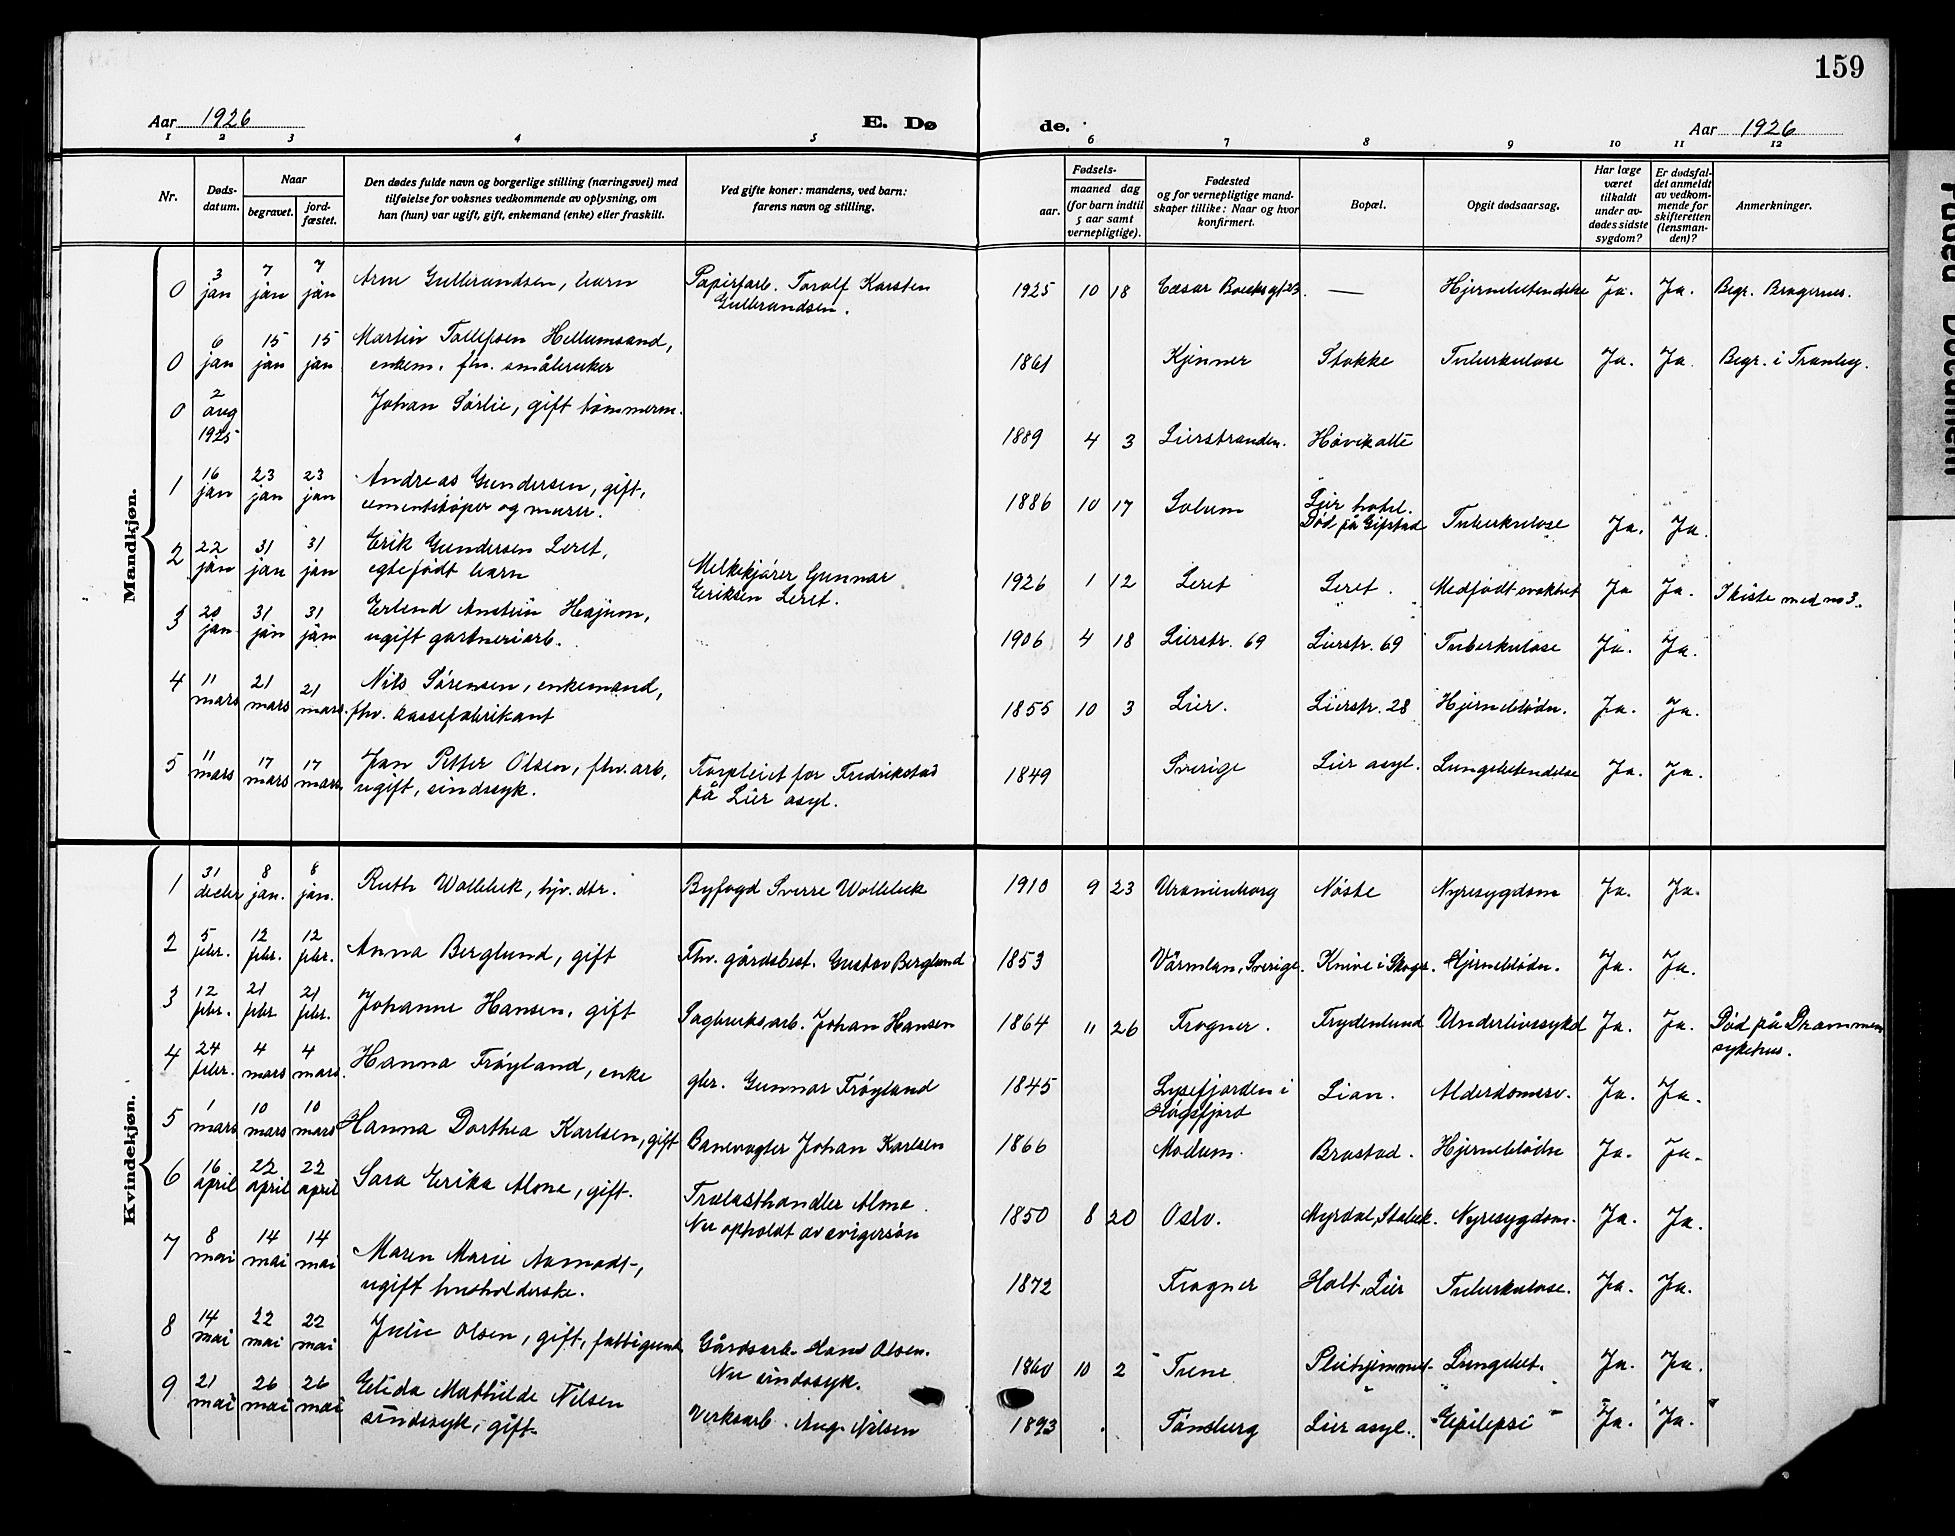 159
Aar 1926 E. Dø de. Aar 1926
1 2 3 4 5 6 7 8 9 10 11 12
Nr.
Døds-
datum.
Naar
begravet.
jord-
fæstet.
Den dødes fulde navn og borgerlige stilling (næringsvei) med
tilføielse for voksnes vedkommende av oplysning, om
han (hun) var ugift, gift, enkemand (enke) eller fraskilt.
Ved gifte koner: mandens, ved barn:
farens navn og stilling.
Fødsels-
aar.
maaned dag
(for barn indtil
5 aar samt
vernepligtige).
Fødested
og for vernepligtige mand-
skaper tillike: Naar og hvor
konfirmert.
Bopæl.
Opgit dødsaarsag.
Har læge
været
tilkaldt
under av-
dødes sidste
sygdom?
Er dødsfal-
det anmeldt
av vedkom-
mende for
skifteretten
(lensman-
den)?
Anmerkninger.
Mandkjøn.
0 3 jan 7 jan 7 jan Arne Gulbrandsen, barn Papirfarb. Toralf Karsten
Gulbrandsen. 1925 10 18 Cæsar Boeksgt 23. — Hjernebetendelse Ja. Ja. Begr. Bragernes.
0 6 jan 15 jan 15 jan Martin Tollefsen Hellumsand,
enkem. fhv. småbruker 1861 Kjønner Stokke Tuberkulose Ja. Ja. Begr. i Tranby.
0 2 aug 1925 Johan Sørlie, gift tømmerm. 1889 4 3 Lierstranden. Høvikalte
1 16 jan 23 jan 23 jan Andreas Gundersen, gift,
cementstøper og murer. 1886 10 17 Solum Lier hotel.
Død på Gifstad Tuberkulose Ja. Ja.
2 22 jan 31 jan 31 jan Erik Gundersen Leret,
egtefødt barn Melkekjører Gunnar
Eriksen Leret. 1926 1 12 Leret Leret. Medfødt svakhet Ja Ja. I kiste med no 3.
3 20 jan 31 jan 31 jan Erlend Anstein Hajum,
ugift gartneriarb. 1906 4 18 Lierstr. 69 Lierstr. 69 Tuberkulose Ja. Ja.
4 11 mars 21 mars 21 mars. Nils Sørensen, enkemand,
fhv. kassefabrikant 1855 10 3 Lier. Lierstr. 28 Hjerneblødn. Ja. Ja.
5 11 mars 17 mars 17 mars Jan Petter Olsen, fhv. arb,
ugift, sindssyk. Forpleiet for Fredrikstad
på Lier asyl. 1849 Sverige Lier asyl. Lungebetendelse Ja. Ja.
Kvindekjøn.
1 31 decbr 8 jan. 8 jan. Ruth Wollebæk, hjv. dtr. Byfogd Sverre Wollebæk 1910 9 23 Uranienborg Nøste Nyresygdom Ja. Ja.
2 5 febr. 12 febr. 12 febr. Anna Berglund, gift Fhv. gårdsbest. Gustav Berglund 1853 Värmlan, Sverige. Knive i Skoger. Hjerneblødn. Ja. Ja.
3 12 febr. 21 febr 21 febr. Johanne Hansen, gift Sagbruksarb. Johan Hansen 1864 11 26 Frogner. Frydenlund Underlivssykd Ja. Ja. Død på Drammens
sykehus.
4 24 febr. 4 mars 4 mars. Hanna Frøyland, enke gbr. Gunnar Frøyland 1845 Lysefjorden i
Høgsfjord Lian. Alderdomssv. Ja. Ja.
5 1 mars 10 mars 10 mars Hanna Dorthea Karlsen, gift Banevogter Johan Karlsen 1866 Modum. Brastad. Hjerneblødn Ja. Ja.
6 16 april 22 april 22 april Sara Erika Alme, gift. Trælasthandler Alme.
Nu opholdt av svigersøn 1850 8 20 Oslo. Myrdal, Stabæk. Nyresygdom. Ja. Ja.
7 8 mai 14 mai 14 mai Maren Marie Aamodt,
ugift husholderske. 1872 Frogner Holt, Lier Tuberkulose. Ja. Ja.
8 14 mai 22 mai 22 mai Julie Olsen, gift, fattigund. Gårdsarb. Hans Olsen.
Nu sindssyk. 1860 10 2 Trene Pleiehjemmet. Lungebet. Ja. Ja.
9 21 mai 26 mai 26 mai Elida Mathilde Nilsen
sindssyk, gift. Verksarb. Aug. Nilsen 1893 Tønsberg Lier asyl. Epilepsi Ja. Ja.